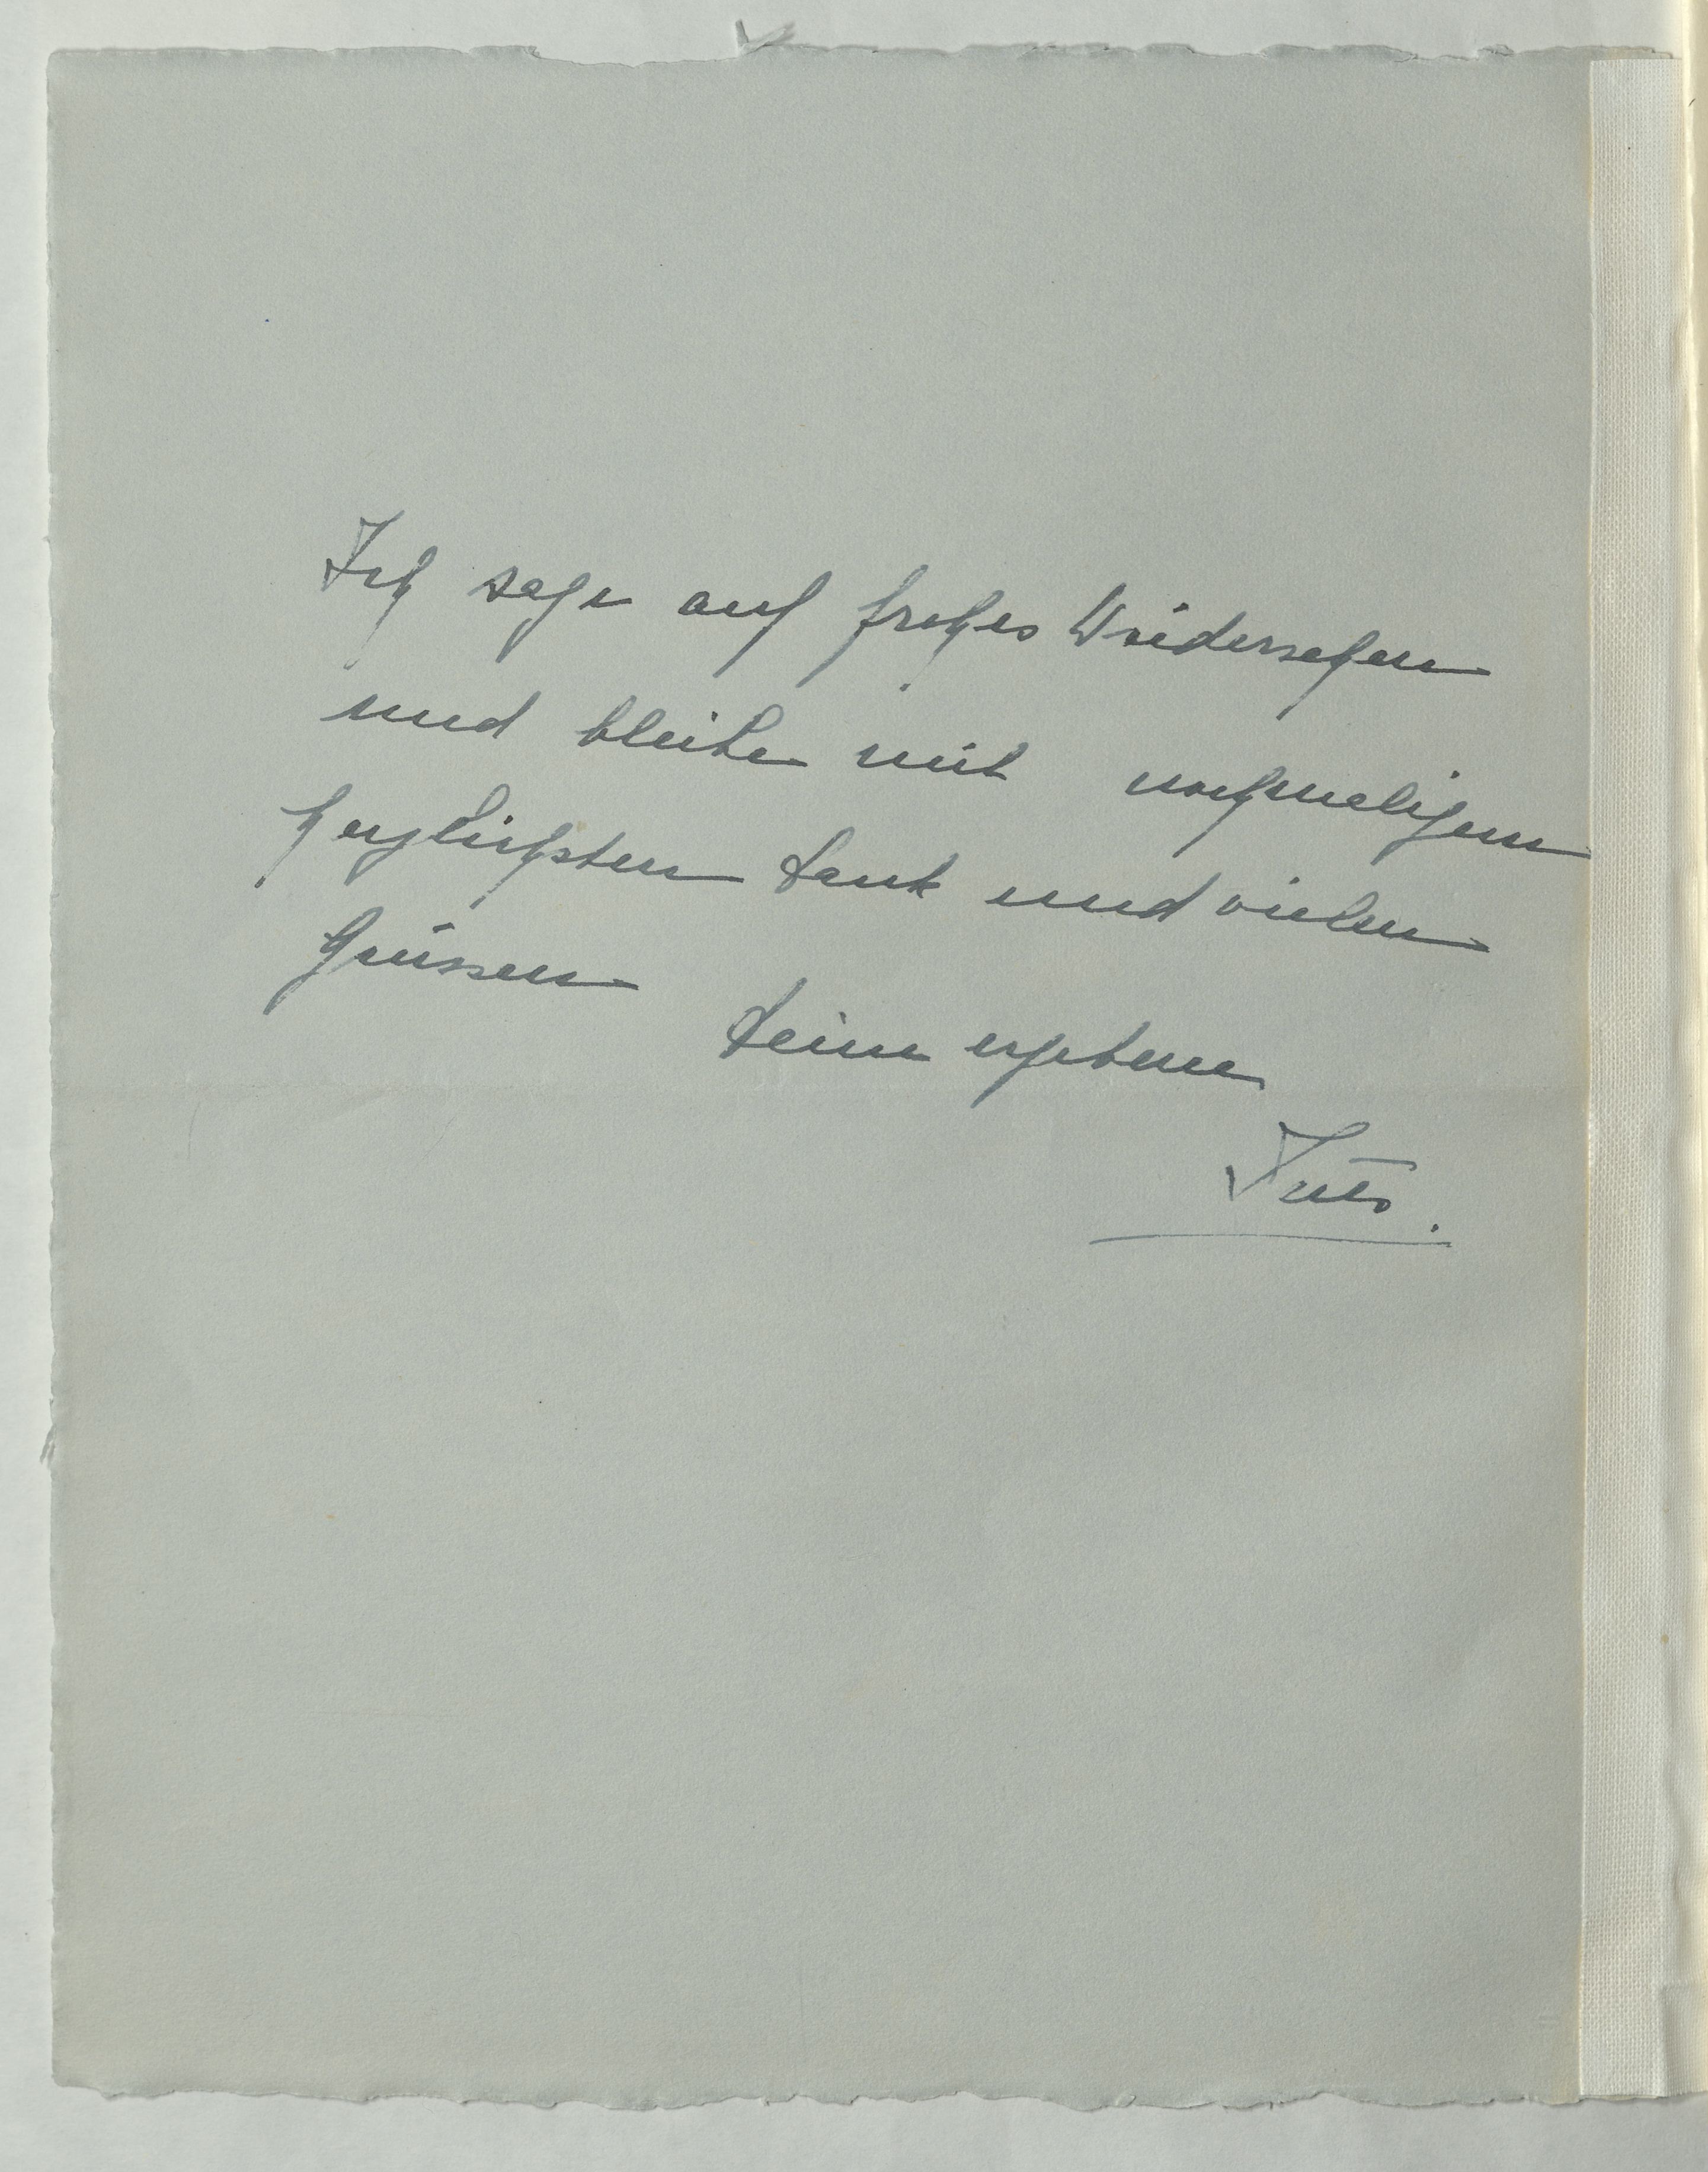 Ich sage auf frohes Wiedersehen
und bleibe mit nochmaligem
herzlichsten Dank und vielen
Grüssen
Deine ergebene